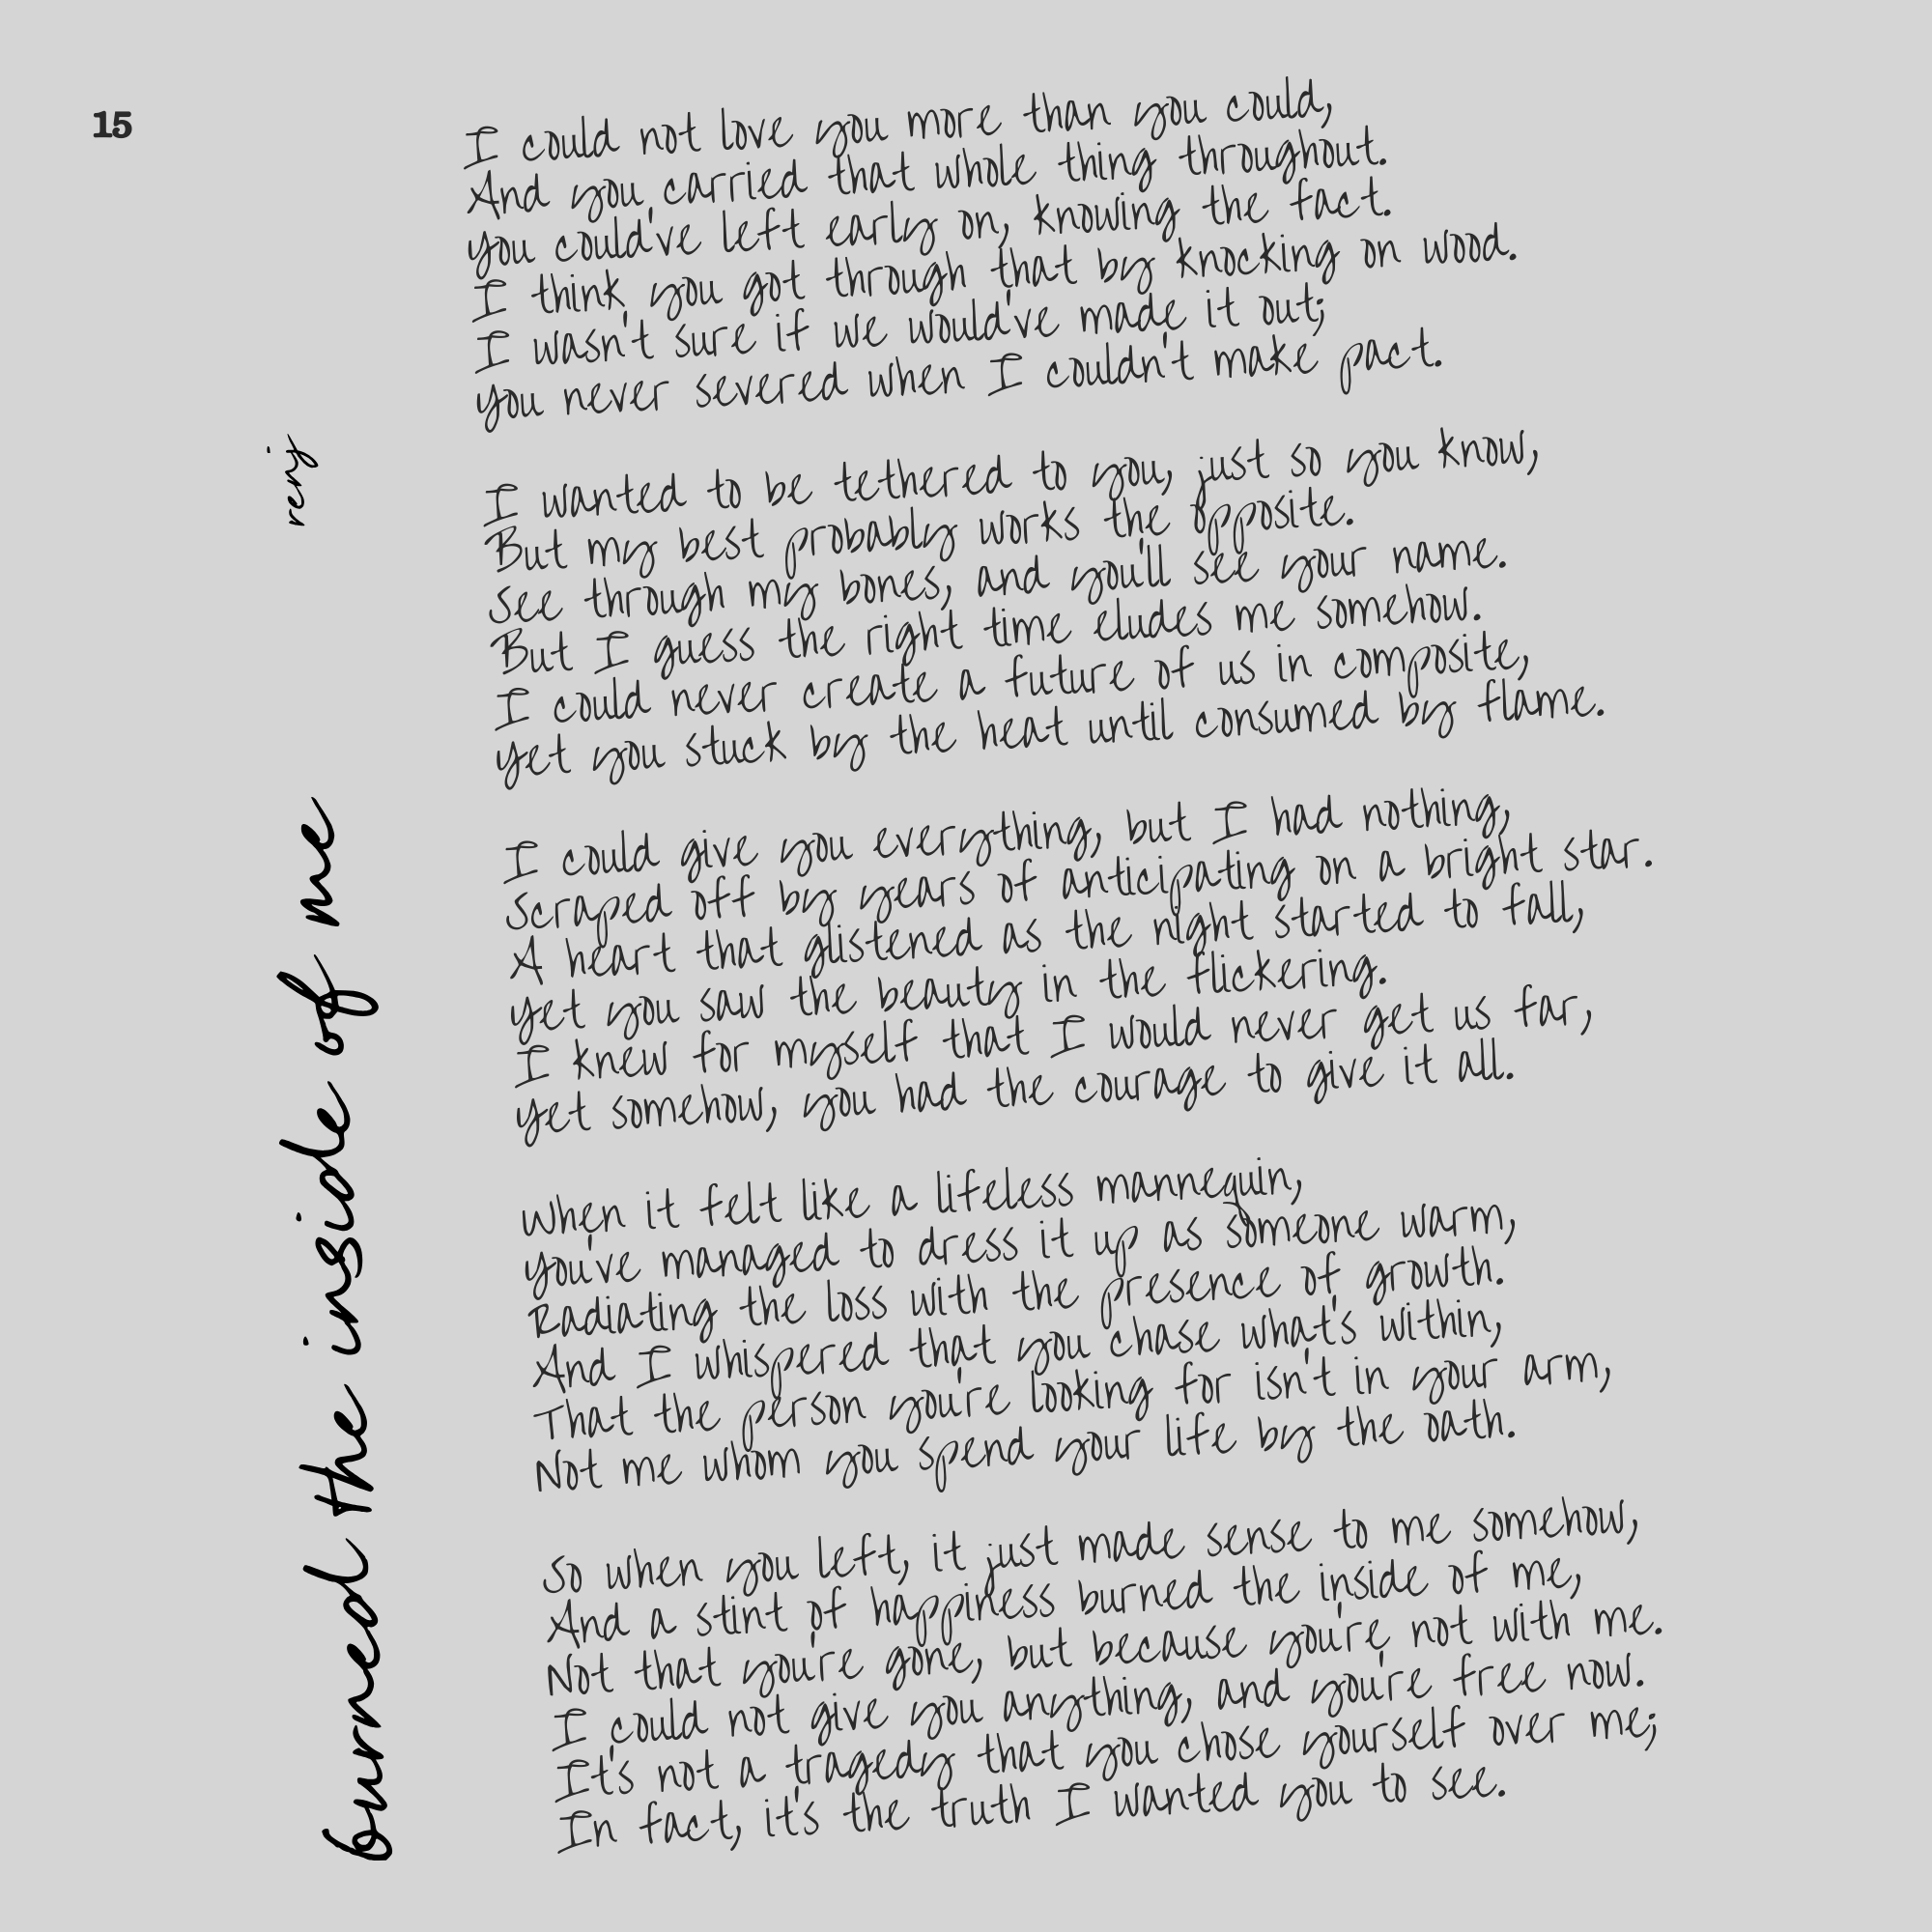 15
burned the inside of me
renj
I could not love you more than you could,
And you carried that whole thing throughout.
You could've left early on, knowing the fact.
I think you got through that by knocking on wood.
I wasn't sure if we would've made it out;
You never severed when I couldn't make pact.
I wanted to be tethered to you, just so you know,
But my best probably works the opposite.
See through my bones, and you'll see your name.
But I guess the right time eludes me somehow.
I could never create a future of us in composite,
Yet you stuck by the heat until consumed by flame.
I could give you everything, but I had nothing,
Scraped off by years of anticipating on a bright star.
A heart that glistened as the night started to fall,
Yet you saw the beauty in the flickering.
I knew for myself that I would never get us far,
Yet somehow, you had the courage to give it all.
When it felt like a lifeless mannequin,
You've managed to dress it up as someone warm,
Radiating the loss with the presence of growth.
And I whispered that you chase what's within,
That the person you're looking for isn't in your arm,
Not me whom you spend your life by the oath.
So when you left, it just made sense to me somehow,
And a stint of happiness burned the inside of me,
Not that you're gone, but because you're not with me.
I could not give you anything, and you're free now.
It's not a tragedy that you chose yourself over me;
In fact, it's the truth I wanted you to see.